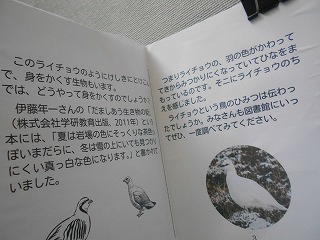 このライチョウのようにけしきにとけこん
で、身をかくす生物もいます。
では、どうやって身をかくすのでしょうか?
伊藤年一さんの「だましあう生き物の
(株式会社学研教育出版、2011年)という
本には、「夏は岩場の色にそっくりな茶色っ
ぽいまだらに、冬は雪の上にいても見つか
にくい真っ白な色になります。」と書かれて
いました。
つまりライチョウは、羽の色がかわって
てきからみつかりにくくなっていてひなをま
もっているのです。そこにライチョウのち
えを感じました。
ライチョウという鳥のひみつは伝わっ
たでしょうか。みなさんも図書館にいっ
てぜひ、一度調べてみてください。